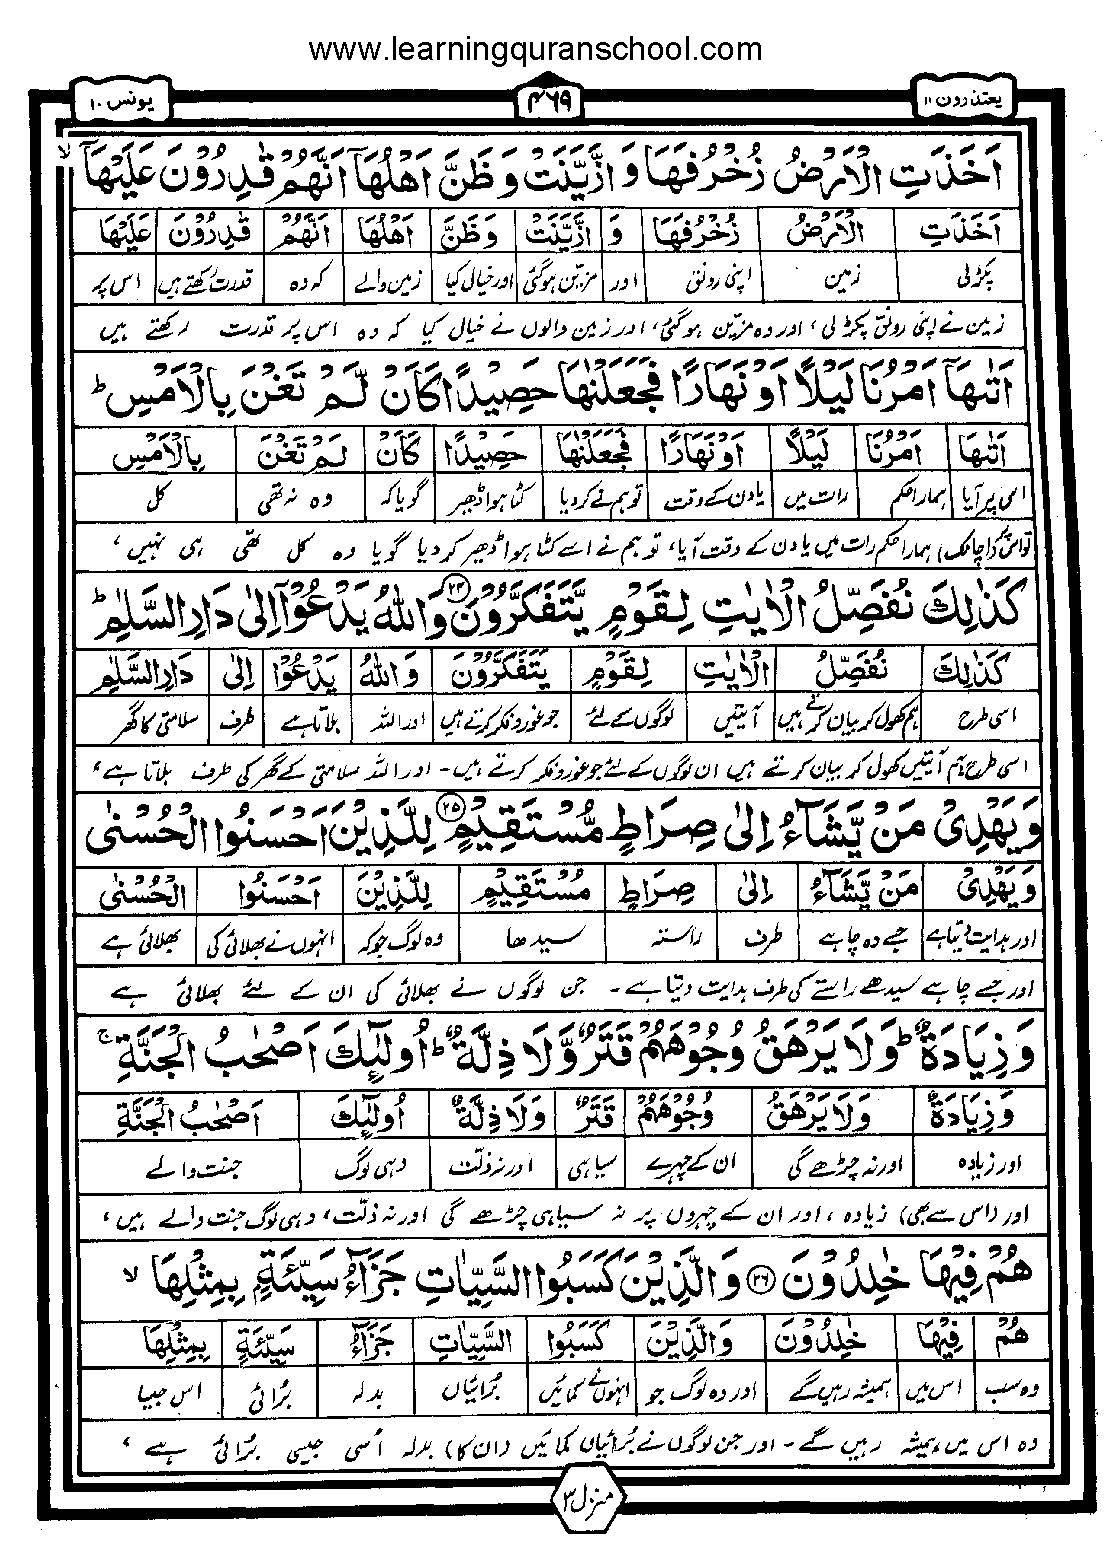 www.learningquranschool.com
یعتذرون ۱۱
۴۶۹
یونس ۱۰
اَخَذَتِ الْاَرْضُ زُخْرُفَهَا وَ ازَّیَّنَتْ وَ ظَنَّ اَهْلُهَاۤ اَنَّهُمْ قٰدِرُوْنَ عَلَیْهَاۤ ۙ
اَخَذَتِ الْاَرْضُ زُخْرُفَهَا وَ ازَّیَّنَتْ وَ ظَنَّ اَهْلُهَا اَنَّهُمْ قٰدِرُوْنَ عَلَیْهَا
پکڑلی زمین اپنی رونق اور مزین ہوگئی اور خیال کیا زمین والے کہ وہ قدرت رکھتے ہیں اس پر
زمین نے اپنی رونق پکڑ لی، اور وہ مزین ہوگئی، اور زمین والوں نے خیال کیا کہ وہ اس پر قدرت رکھتے ہیں
اَتٰىهَاۤ اَمْرُنَا لَیْلًا اَوْ نَهَارًا فَجَعَلْنٰهَا حَصِیْدًا كَاَنْ لَّمْ تَغْنَ بِالْاَمْسِ ؕ
اَتٰىهَا اَمْرُنَا لَیْلًا اَوْ نَهَارًا فَجَعَلْنٰهَا حَصِیْدًا كَاَنْ لَمْ تَغْنَ بِالْاَمْسِ
اس پر آیا ہمارا حکم رات میں یا دن کے وقت تو ہم نے کردیا کٹا ہوا ڈھیر گویا کہ وہ نہ تھی کل
ہمارا حکم رات میں یا دن کے وقت آیا، تو ہم نے اسے کٹا ہوا ڈھیر کر دیا گویا وہ کل تھی ہی نہیں،
كَذٰلِكَ نُفَصِّلُ الْاٰیٰتِ لِقَوْمٍ یَّتَفَكَّرُوْنَ ۲۴ وَ اللّٰهُ یَدْعُوْۤا اِلٰى دَارِ السَّلٰمِ ؕ
كَذٰلِكَ نُفَصِّلُ الْاٰیٰتِ لِقَوْمٍ یَتَفَكَّرُوْنَ وَ اللّٰهُ یَدْعُوْا اِلٰى دَارِ السَّلٰمِ
اسی طرح ہم کھول کر بیان کرتے ہیں آیتیں لوگوں کے لئے جو غور و فکر کرتے ہیں اور اللہ بلاتا ہے طرف سلامتی کا گھر
اسی طرح ہم آیتیں کھول کر بیان کرتے ہیں ان لوگوں کے لئے جو غور و فکر کرتے ہیں۔ اور اللہ سلامتی کے گھر کی طرف بلاتا ہے،
وَ یَهْدِیْ مَنْ یَّشَآءُ اِلٰى صِرَاطٍ مُّسْتَقِیْمٍ ۲۵ لِلَّذِیْنَ اَحْسَنُوا الْحُسْنٰى
وَ یَهْدِیْ مَنْ یَّشَآءُ اِلٰى صِرَاطٍ مُسْتَقِیْمٍ لِلَّذِیْنَ اَحْسَنُوا الْحُسْنٰى
اور ہدایت دیتا ہے جسے وہ چاہے طرف راستہ سیدھا وہ لوگ جو کہ انہوں نے بھلائی کی بھلائی ہے
اور جسے چاہے سیدھے راستے کی طرف ہدایت دیتا ہے۔ جن لوگوں نے بھلائی کی ان کے لئے بھلائی ہے
وَ زِیَادَةٌ ؕ وَ لَا یَرْهَقُ وُجُوْهَهُمْ قَتَرٌ وَّ لَا ذِلَّةٌ ؕ اُولٰٓىِٕكَ اَصْحٰبُ الْجَنَّةِ ۚ
وَ زِیَادَةٌ وَ لَا یَرْهَقُ وُجُوْهَهُمْ قَتَرٌ وَ لَا ذِلَّةٌ اُولٰٓىِٕكَ اَصْحٰبُ الْجَنَّةِ
اور زیادہ اور نہ چڑھے گی ان کے چہرے سیاہی اور نہ ذلت وہی لوگ جنت والے
اور (اس سے بھی) زیادہ، اور ان کے چہروں پر نہ سیاہی چڑھے گی اور نہ ذلت، وہی لوگ جنت والے ہیں،
هُمْ فِیْهَا خٰلِدُوْنَ ۲۶ وَ الَّذِیْنَ كَسَبُوا السَّیِّاٰتِ جَزَآءُ سَیِّئَةٍۭ بِمِثْلِهَا ۙ
هُمْ فِیْهَا خٰلِدُوْنَ وَ الَّذِیْنَ كَسَبُوا السَّیِّاٰتِ جَزَآءُ سَیِّئَةٍ بِمِثْلِهَا
وہ سب اس میں ہمیشہ رہیں گے اور وہ لوگ جو انہوں نے کمائیں برائیاں بدلہ برائی اس جیسا
وہ اس میں ہمیشہ رہیں گے۔ اور جن لوگوں نے برائیاں کمائیں (ان کا) بدلہ اُسی جیسی برائی ہے،
منزل ۳